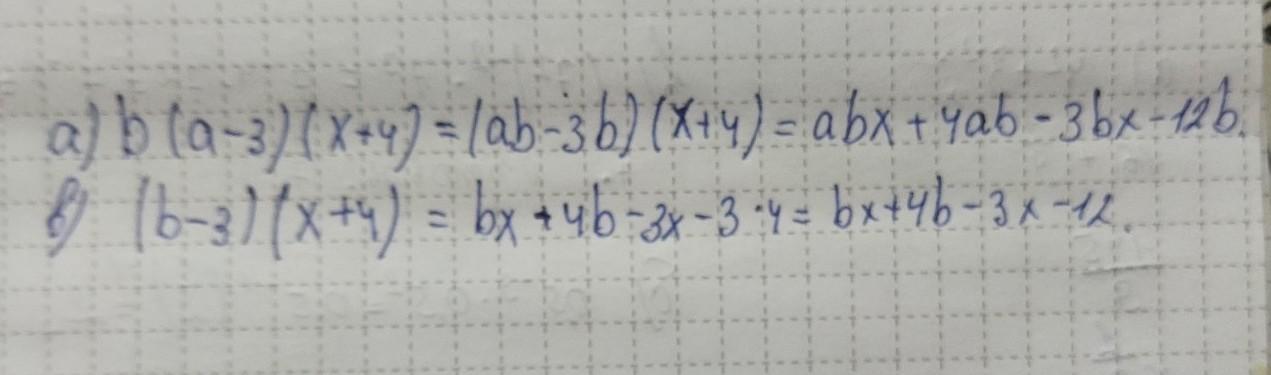 a) b (a-3)(x+4) = (ab-3b)(x+4) = abx + 4ab - 3bx - 12b.
в) (b-3)(x+4) = bx + 4b - 3x - 3·4 = bx+4b-3x-12.